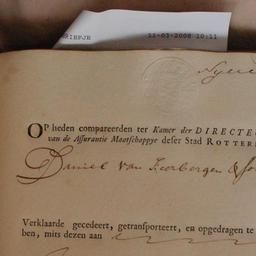 11-03-2008 10:11
OP heden compareerden ter Kamer der DIRECTE
van de Assurantie Maatschappye deser Stad ROTTER
Daniel van
Verklaarde gecedeert, getransporteert, en opgedragen te
ben, mits dezen aan